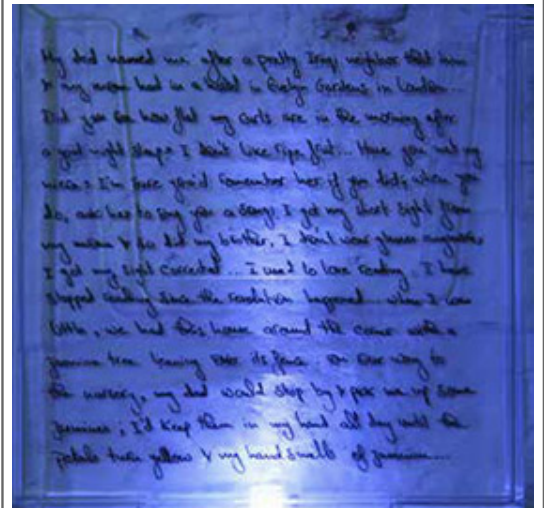 My dad named me after a pretty Iraqi neighbor that him
& my mum had in a hotel in Evelyn Gardens in London...
Did you see how flat my curls are in the morning after
a good night sleep? I don't like ripe fruit... Have you met my
niece? I'm sure you'd remember her if you did, when you
do, ask her to sing you a song. I got my short sight from
my mum & so did my brother, I don't wear glasses anymore,
I got my sight corrected... I used to love reading, I have
stopped reading since the revolution happened... when I was
little, we had this house around the corner with a
jasmine tree leaning over its fence. on our way to
the nursery, my dad would stop by & pick me up some
jasmines; I'd keep them in my hand all day until the
petals turn yellow & my hand smells of jasmine...